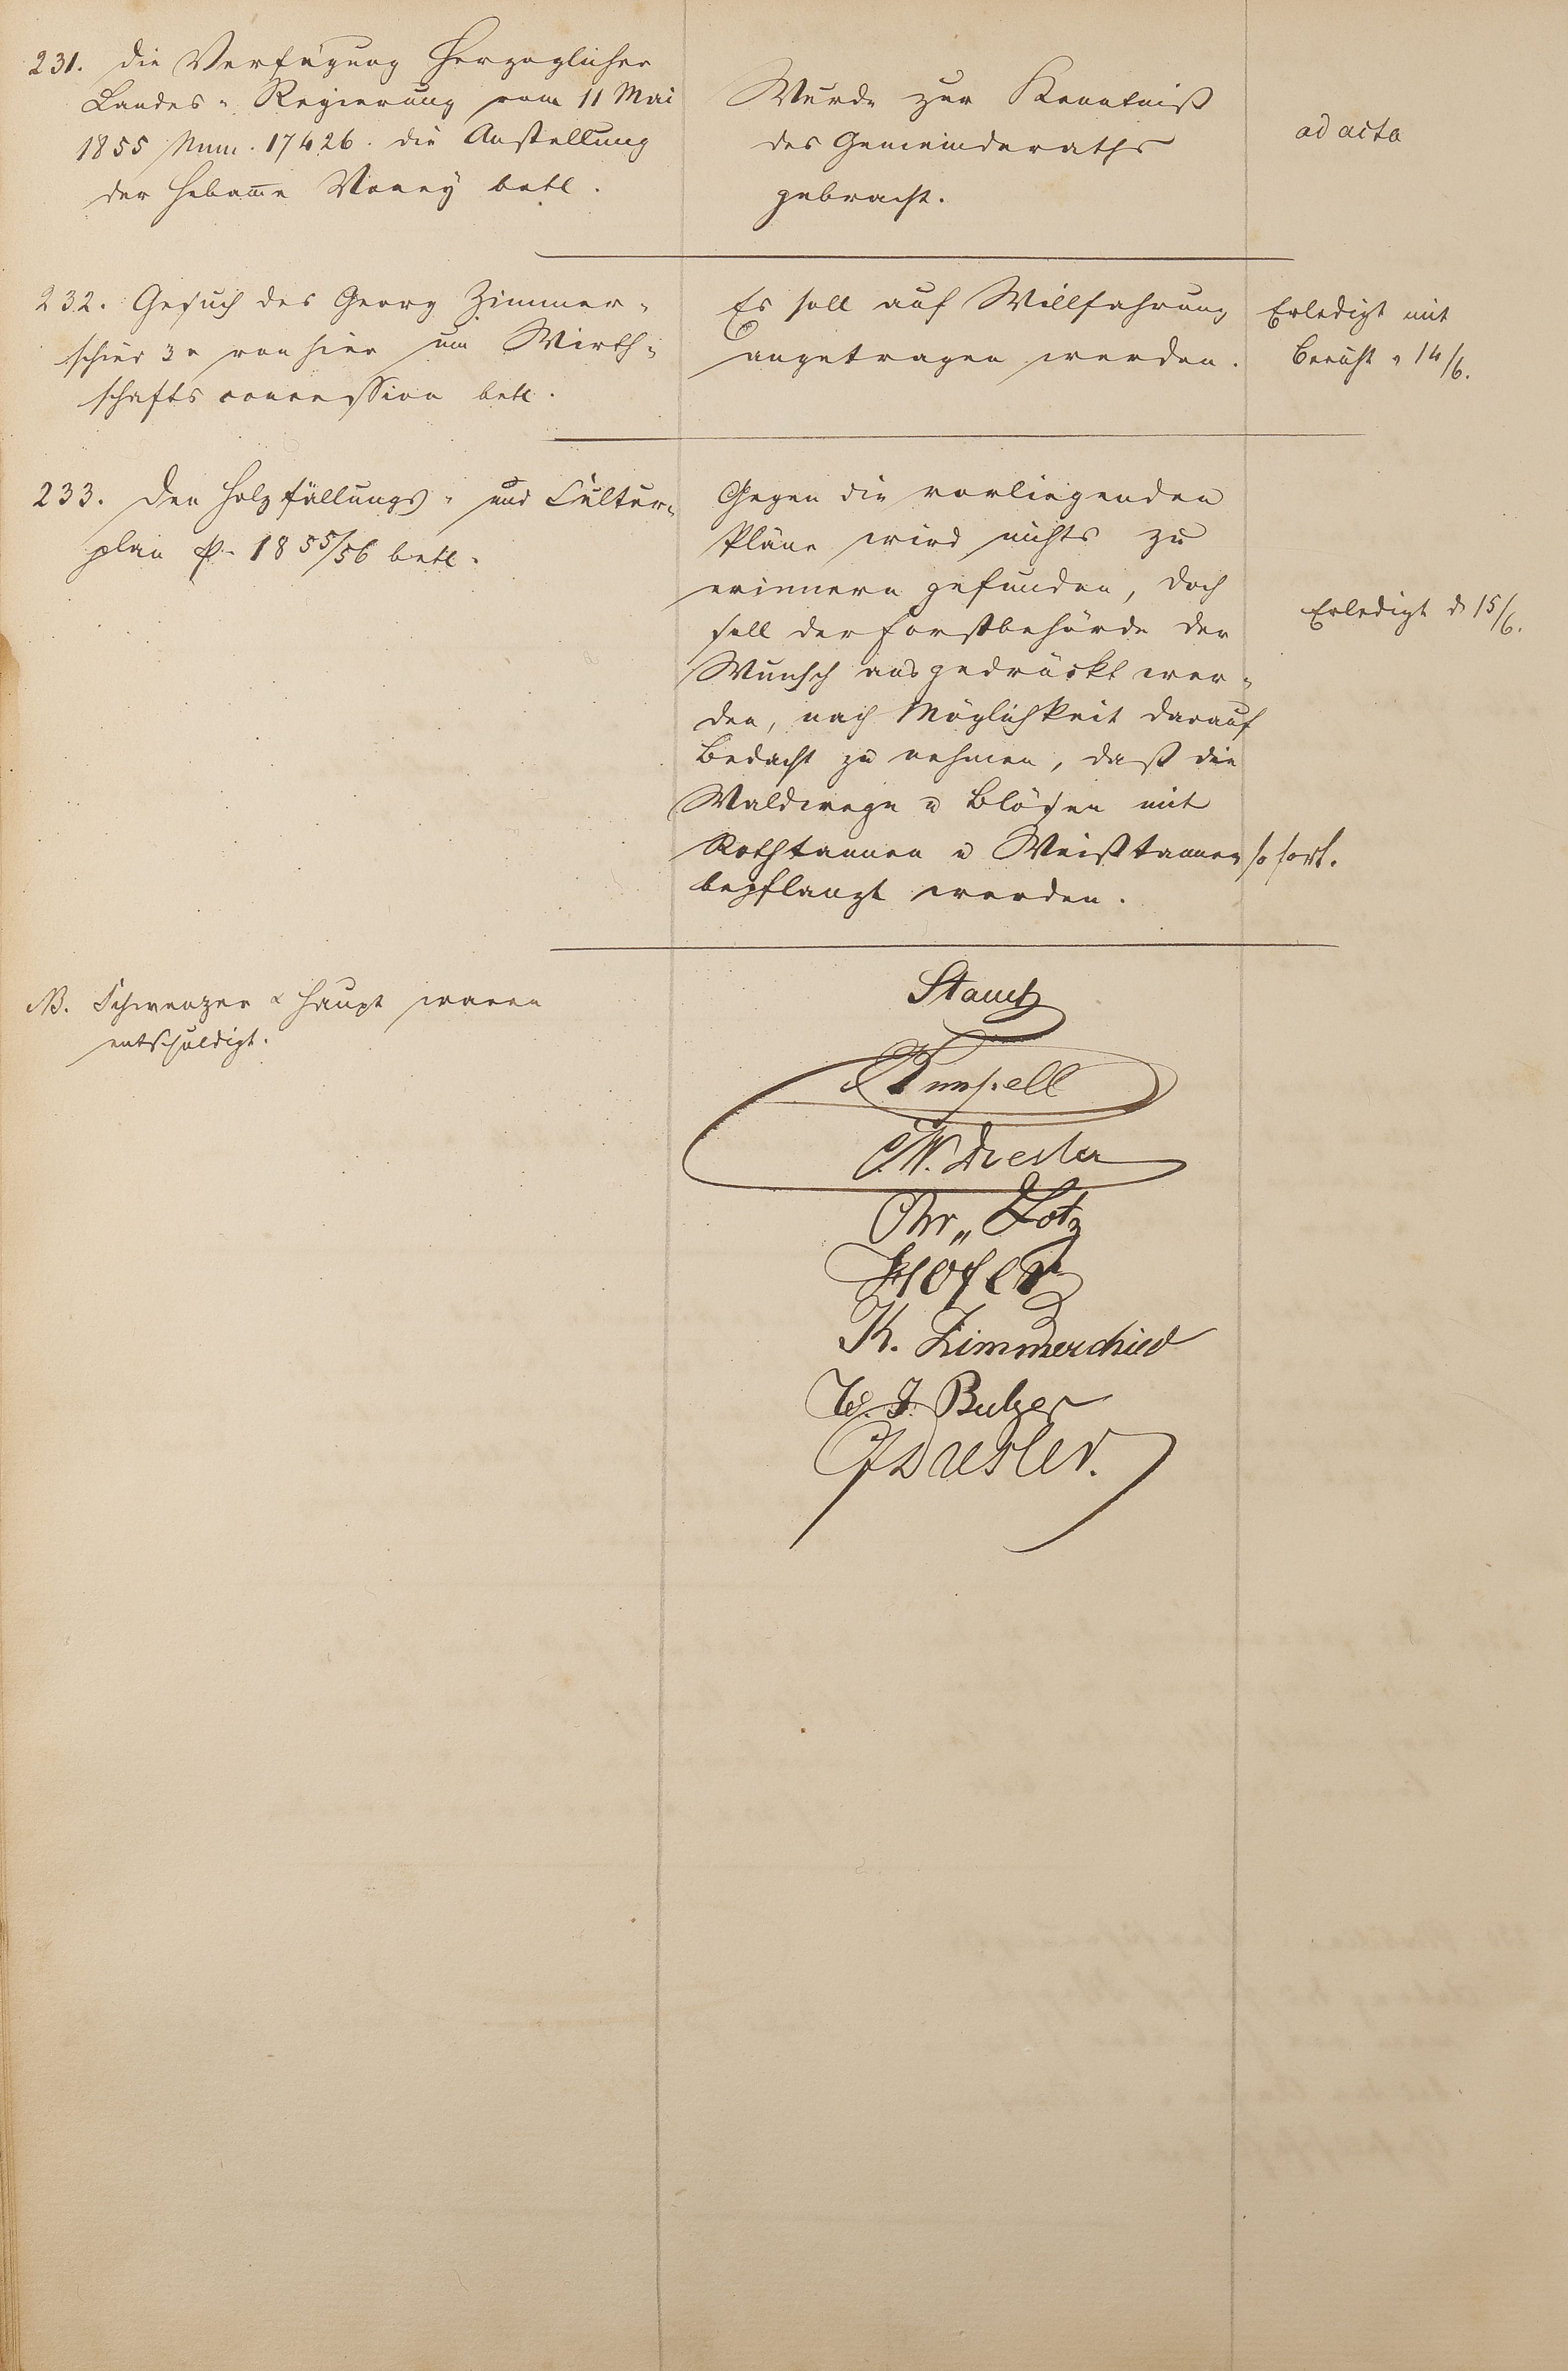 231. Die Verfügung Herzoglicher
Landes-Regierung vom 11 Mai
1855 Num. 17426. die Anstellung
der Hebam̅e betl.
Wurde zur Kenntniß
des Gemeinderaths
gebracht.
ad acta
232. Gesuch des Georg Zimmer-
schied 3r von hier um Wirth-
schaftsconcession betl.
Es soll auf Willfahrung
angetragen werden.
Erledigt mit
Bericht v 14/6.
233. Den Holzfällungs- und Cultur-
plan p. 1855/56 betl.
Gegen die vorliegenden
Pläne wird nichts zu
erinnern gefunden, doch
soll der Forstbehörde der
Wunsch ausgedrückt wer-
den, nach Möglichkeit darauf
Bedacht zu nehmen, daß die
Waldwege u Blößen mit
Rothtannen u Weißtannen sofort.
bepflanzt werden.
Erledigt d 15/6.
NB. Schwenzer & Haupt waren
entschuldigt.
Stauch
C. W. Diesler
Chr. Lotz
Höfer
K. Zimmerschied
W. J. Bulzer